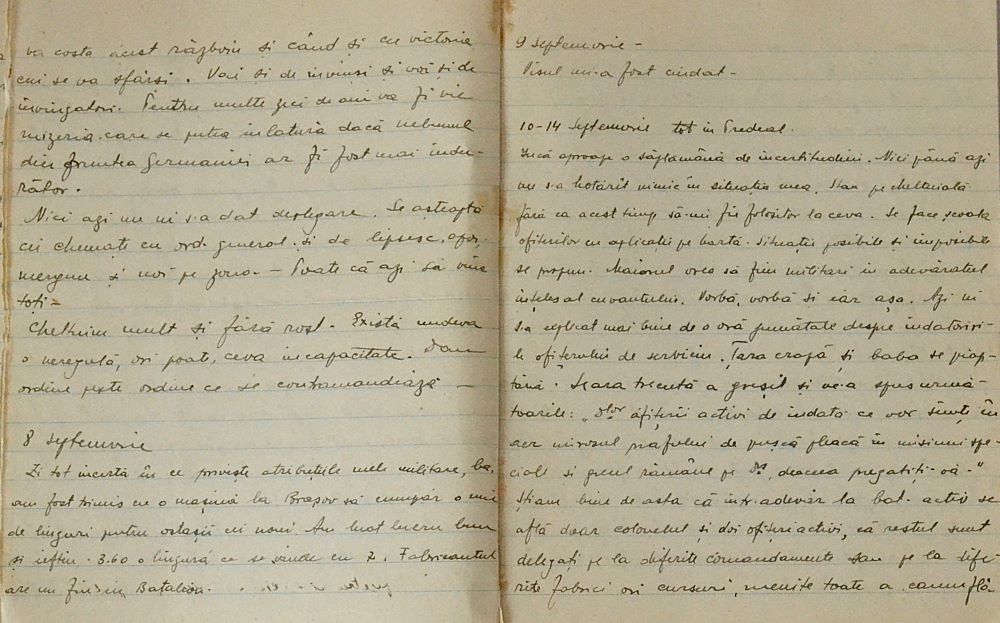 va costa acest războiu și când și cu victoria
cui se va sfârși. Vai și de învinși și vai și de
învingători. Pentru multe zeci de ani va fi vie
mizeria care se putea înlătura dacă nebunul
din fruntea Germaniei ar fi fost mai îndu-
rător.
Nici azi nu ni s-a dat deslegare. Se așteaptă
cei chemați cu ord. general și de lipsesc, apoi
mergem și noi pe zona. - Poate că azi să vină
toți -
Cheltuim mult și fără rost. Există undeva
o neregulă, ori poate, ceva incapacitate. Dau
ordine peste ordine ce se contramandiază -
8 Septemvrie
Zi tot incertă în ce privește atribuțiile mele militare, ba,
am fost trimis cu o mașină la Brașov să cumpăr o mie
de linguri pentru ostașii cei noui. Am luat lucru bun
și ieftin. 3.60 o lingură ce se vinde cu 7. Fabricantul
are un fiu în Batalion.
9 Septemvrie -
Visul mi-a fost ciudat -
10-14 Septemvrie tot în Predeal.
Încă aproape o săptămână de incertitudini. Nici până azi
nu s-a hotărît nimic în situația mea. Stau pe cheltuială
fără ca acest timp să-mi fie folositor la ceva. Se face școala
ofițerilor cu aplicații pe hartă. Situații posibile și imposibile
se propun. Maiorul vrea să fim militari în adevăratul
înțeles al cuvântului. Vorbă, vorbă și iar așa. Azi ni
s-a explicat mai bine de o oră jumătate despre îndatoriri-
le ofițerului de serviciu. Țara crapă și baba se piap-
tănă. Seara trecută a greșit și ne-a spus urmă-
toarele: "Dlor ofițerii activi de îndată ce vor simți în
aer mirosul prafului de pușcă pleacă în misiuni spe-
ciale și greul rămâne pe Dv, deaceea pregătiți-vă-"
Știam bine de asta că într-adevăr la bat. activ se
află doar colonelul și doi ofițeri activi, că restul sunt
delegați pe la diferite comandamente sau pe la dife-
rite fabrici ori cursuri, menite toate a camuflà